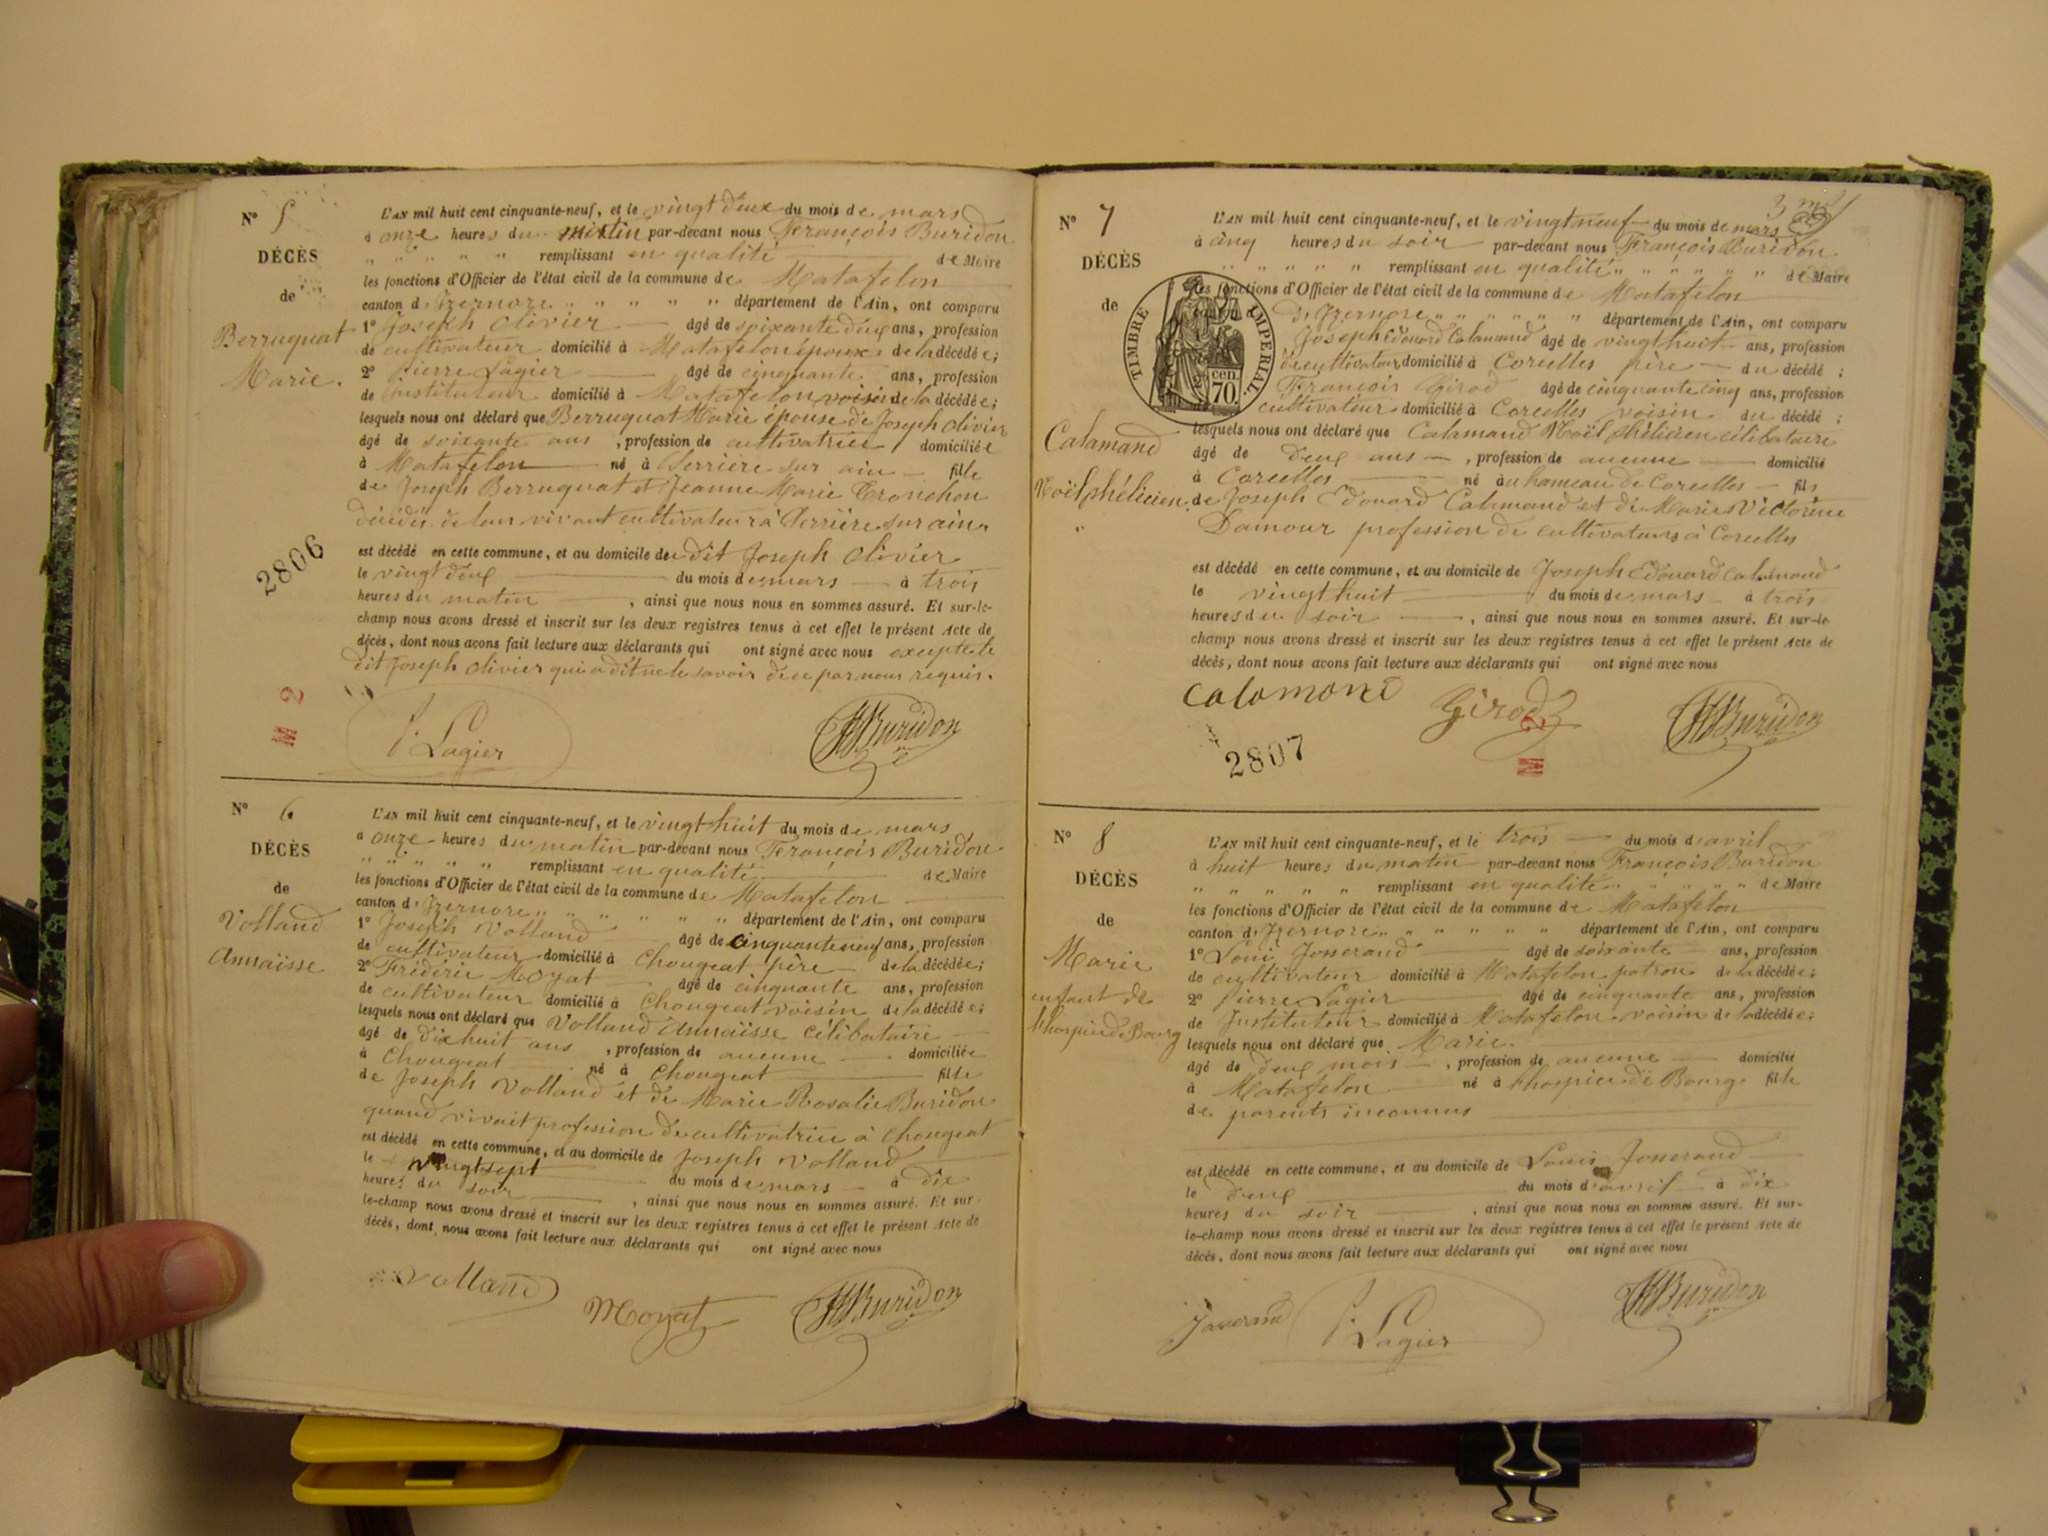 N° 5
DÉCÈS
de
Berruquat
Marie.
2806
M 2
L'AN mil huit cent cinquante-neuf, et le vingt deux du mois de mars
à onze heures du matin par-devant nous François Buridon
" " " " " remplissant en qualité de Maire
les fonctions d'Officier de l'état civil de la commune de Matafelon
canton d'Izernore " " " " " département de l'Ain, ont comparu
1° Joseph Olivier âgé de soixante deux ans, profession
de cultivateur domicilié à Matafelon époux de la décédée;
2° Pierre Lagier âgé de cinquante ans, profession
de instituteur domicilié à Matafelon voisin de la décédée;
lesquels nous ont déclaré que Berruquat Marie épouse de Joseph Olivier
âgé de soixante ans, profession de cultivatrice domiciliée
à Matafelon né à Serrière sur ain fille
de Joseph Berruquat et Jeanne Marie Tronchon
décédés de leur vivant cultivateur à Serrière sur ain.
est décédé en cette commune, et au domicile du dit Joseph Olivier
le vingt deux du mois de mars à trois
heures du matin, ainsi que nous nous en sommes assuré. Et sur-le-
champ nous avons dressé et inscrit sur les deux registres tenus à cet effet le présent Acte de
décès, dont nous avons fait lecture aux déclarants qui ont signé avec nous excepté le
dit Joseph Olivier qui a dit ne le savoir de ce par nous requis.
P. Lagier
Buridon
N° 6
DÉCÈS
de
Volland
Annaïsse
L'AN mil huit cent cinquante-neuf, et le vingt huit du mois de mars
à onze heures du matin par-devant nous François Buridon
" " " " " remplissant en qualité de Maire
les fonctions d'Officier de l'état civil de la commune de Matafelon
canton d'Izernore " " " " " " département de l'Ain, ont comparu
1° Joseph Volland âgé de cinquante neuf ans, profession
de cultivateur domicilié à Chougeat père de la décédée;
2° Frédéric Moyat âgé de cinquante ans, profession
de cultivateur domicilié à Chougeat voisin de la décédée;
lesquels nous ont déclaré que Volland Annaïsse célibataire
âgé de dix huit ans, profession de aucune domiciliée
à Chougeat né à Chougeat fille
de Joseph Volland et de Marie Rosalie Buridon
quand vivait profession de cultivatrice à Chougeat
est décédé en cette commune, et au domicile de Joseph Volland
le vingt sept du mois de mars à dix
heures du soir, ainsi que nous nous en sommes assuré. Et sur-
le-champ nous avons dressé et inscrit sur les deux registres tenus à cet effet le présent Acte de
décès, dont nous avons fait lecture aux déclarants qui ont signé avec nous
Volland
Moyat
Buridon
N° 7
DÉCÈS
de
Calamand
Noël phélicien.
TIMBRE IMPÉRIAL.
cen.
70.
L'AN mil huit cent cinquante-neuf, et le vingt neuf du mois de mars
à cinq heures du soir par-devant nous François Buridon
" " " " " remplissant en qualité " " " " " de Maire
les fonctions d'Officier de l'état civil de la commune de Matafelon
d'Izernore " " " " " " département de l'Ain, ont comparu
Joseph Edouard Calamand âgé de vingt huit ans, profession
de cultivateur domicilié à Corcelles père du décédé;
François Girod âgé de cinquante cinq ans, profession
cultivateur domicilié à Corcelles voisin du décédé;
lesquels nous ont déclaré que Calamand Noël phélicien célibataire
âgé de deux ans, profession de aucune domicilié
à Corcelles né au hameau de Corcelles fils
de Joseph Edouard Calamand et de Marie Victorine
Damour profession de cultivateurs à Corcelles
est décédé en cette commune, et au domicile de Joseph Edouard Calamand
le vingt huit du mois de mars à trois
heures du soir, ainsi que nous nous en sommes assuré. Et sur-le-
champ nous avons dressé et inscrit sur les deux registres tenus à cet effet le présent Acte de
décès, dont nous avons fait lecture aux déclarants qui ont signé avec nous
Girod
Buridon
2807
M
N° 8
DÉCÈS
de
Marie
enfant de
l'hospice de Bourg
L'AN mil huit cent cinquante-neuf, et le trois du mois d'avril
à huit heures du matin par-devant nous François Buridon
" " " " " remplissant en qualité " " " " " de Maire
les fonctions d'Officier de l'état civil de la commune de Matafelon
canton d'Izernore " " " " " " département de l'Ain, ont comparu
1° Loui Josserand âgé de soixante ans, profession
de cultivateur domicilié à Matafelon patron de la décédée;
2° Pierre Lagier âgé de cinquante ans, profession
de Instituteur domicilié à Matafelon voisin de la décédée;
lesquels nous ont déclaré que Marie
âgé de deux mois, profession de aucune domicilié
à Matafelon né à l'hospice de Bourg fille
de parents inconnus
est décédé en cette commune, et au domicile de Louis Josserand
le deux du mois d'avril à dix
heures du soir, ainsi que nous nous en sommes assuré. Et sur-
le-champ nous avons dressé et inscrit sur les deux registres tenus à cet effet le présent Acte de
décès, dont nous avons fait lecture aux déclarants qui ont signé avec nous
P. Lagier
Buridon